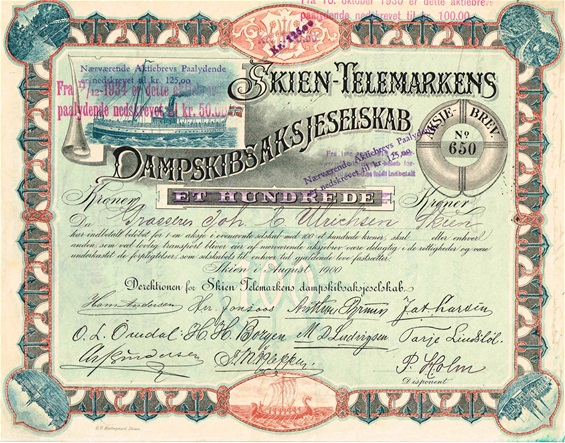 Fra 10. oktober 1930 er dette aktiebrevs
paalydende nedskrevet til kr. 100.00.
Nærværende Aktiebrevs Paalydende
er nedskrevet til kr. 125,00
Fra 17/12-1934 er dette aktiebrevs
paalydende nedskrevet til kr. 50.00
SKIEN-TELEMARKENS
DAMPSKIBSAKSJESELSKAB
AKSJE-BREV
No
650
Nærværende Aktiebrevs Paalydende
er nedskrevet til kr. 125,00
Kroner ET HUNDREDE Kroner
Joh. E. Ulrichsen Skien
har indbetalt beløbet for 1 en aksje i ovennævnte selskab med 100 et hundrede kroner, skal eller enhver
anden som ved lovlig transport bliver eier af nærværende aksjebrev være delagtig i de rettigheder og være
underkastet de forpligtelser som selskabets til enhver tid gjeldende love fastsætter.
Skien i August 1900
Direktionen for Skien Telemarkens dampskibsaksjeselskab.
Hans Andersen
O. L. Omdal H. H. Borgen M. D. Ludvigsen
P. Holm
Disponent